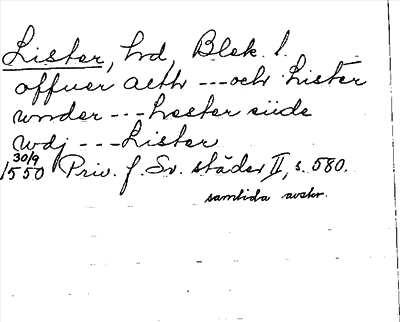 Lister, hd, Blek. l.
offuer alth --- och Lister
wnder --- Lester siide
wdj --- Lister
30/9
1550 Priv. f. Sv. städer II, s. 580.
samtida avskr.